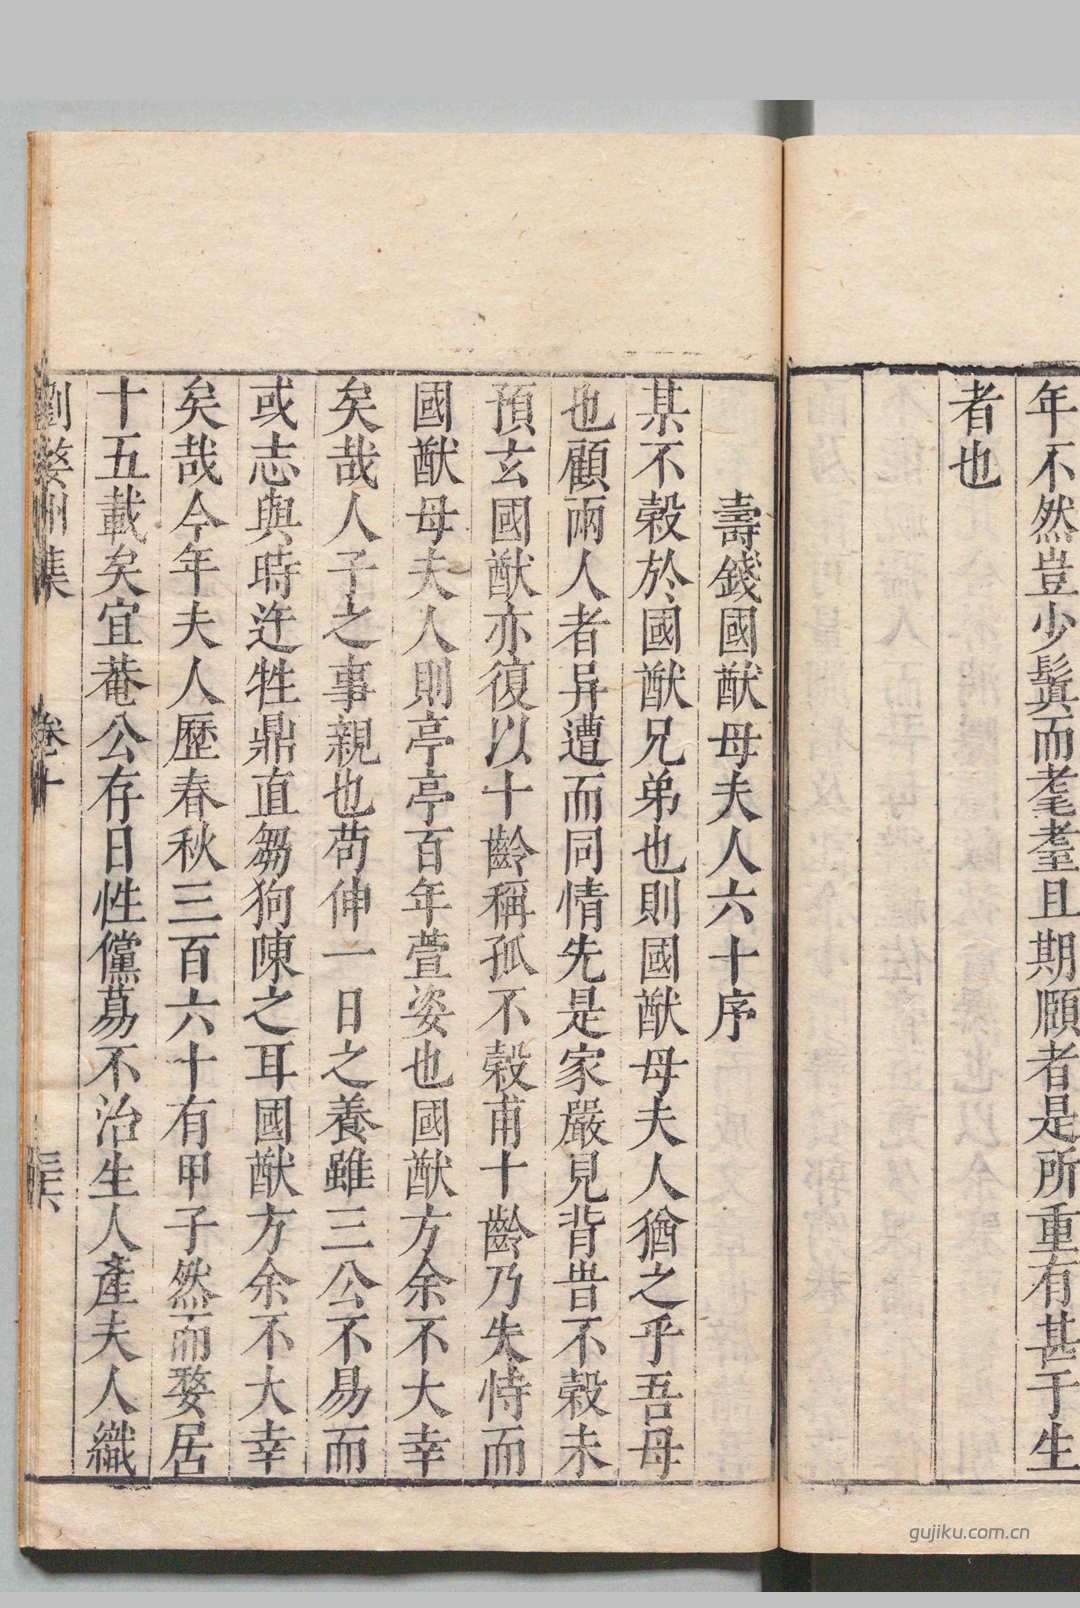 年不然豈少鬒而耄耋且期願者是所重有甚于生
者也
壽錢國猷母夫人六十序
某不穀於國猷兄弟也則國猷母夫人猶之乎吾母
也顧兩人者异遭而同情先是家嚴見背旹不穀未
預玄國猷亦復以十齡稱孤不穀甫十齡乃失恃而
國猷母夫人則亭亭百年萱姿也國猷方余不大幸
矣哉人子之事親也苟伸一日之養雖三公不易而
或志與時迕牲鼎直芻狗陳之耳國猷方余不大幸
矣哉今年夫人歷春秋三百六十有甲子然而嫠居
十五載矣宜菴公存日性儻蕩不治生人產夫人織
劉婺州集 卷十